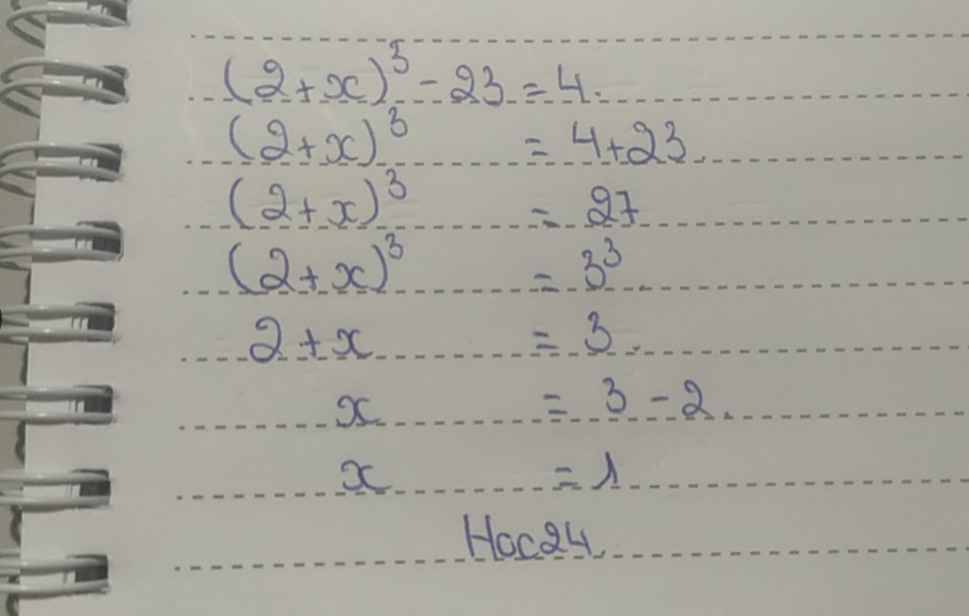 (2+x)³ - 23 = 4.
(2+x)³ = 4+23.
(2+x)³ = 27
(2+x)³ = 3³.
2+x = 3.
x = 3-2.
x = 1
Hoc24.